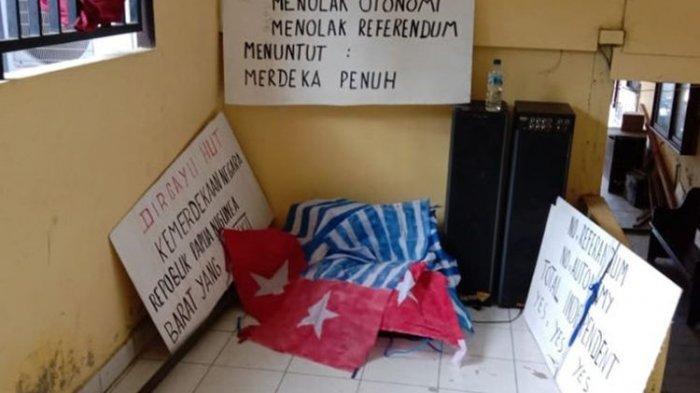 MENOLAK OTONOMI
MENOLAK REFERENDUM
MENUNTUT :
MERDEKA PENUH
DIRGAYU HUT
KEMERDEKAAN NEGARA
REPOBLIK PAPUA NIUGINEA
BARAT YANG
NO REFERANDUM
NO AUTONOMY
TOTAL INDEPENDENT
YES YES YES